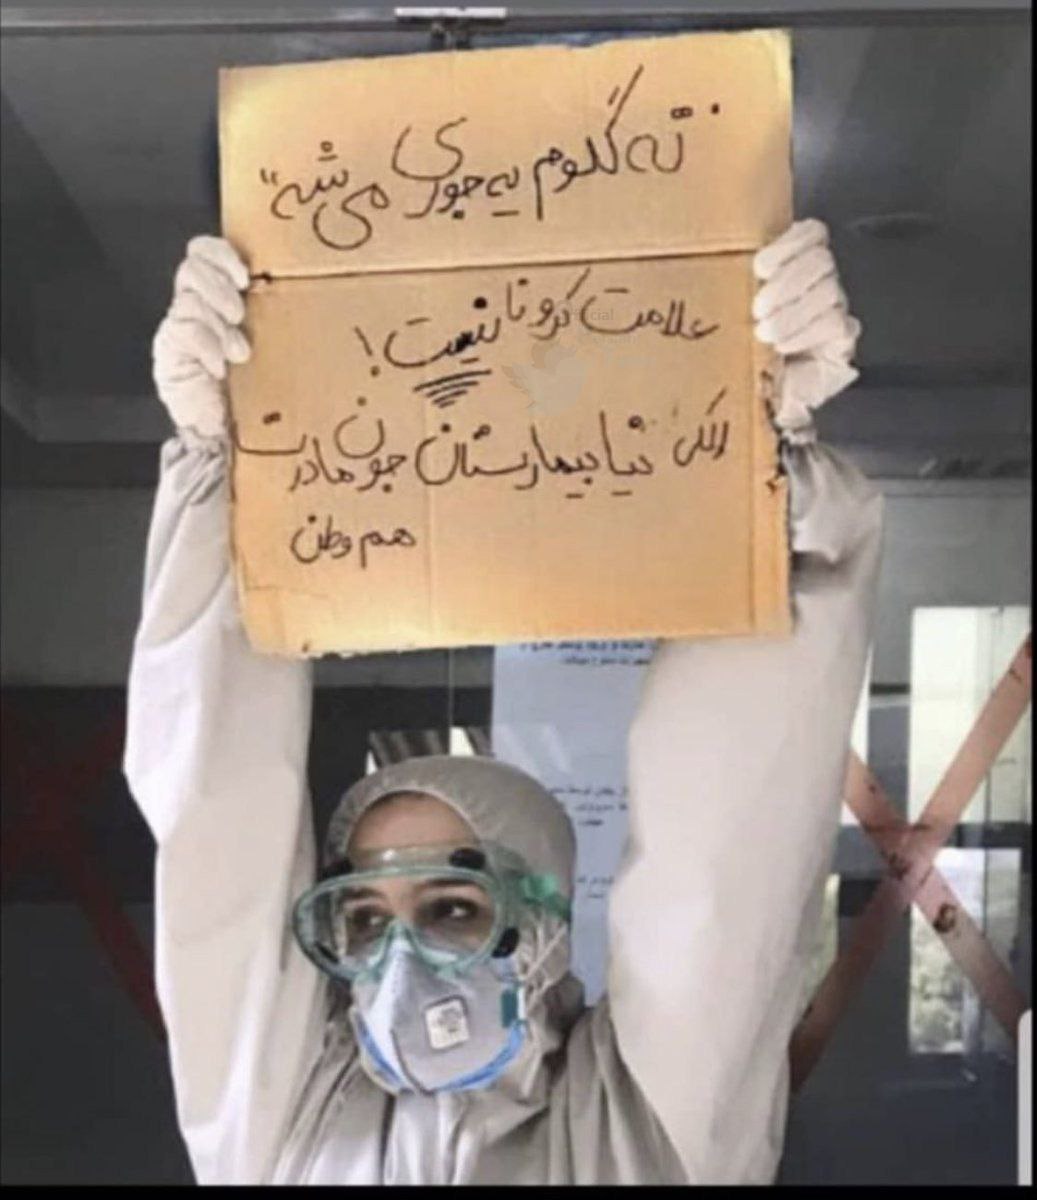 "ته گلوم یه جوری می شه"
علامت کرونا نیست!
الکی نیا بیمارستان جون مادرت
هم وطن